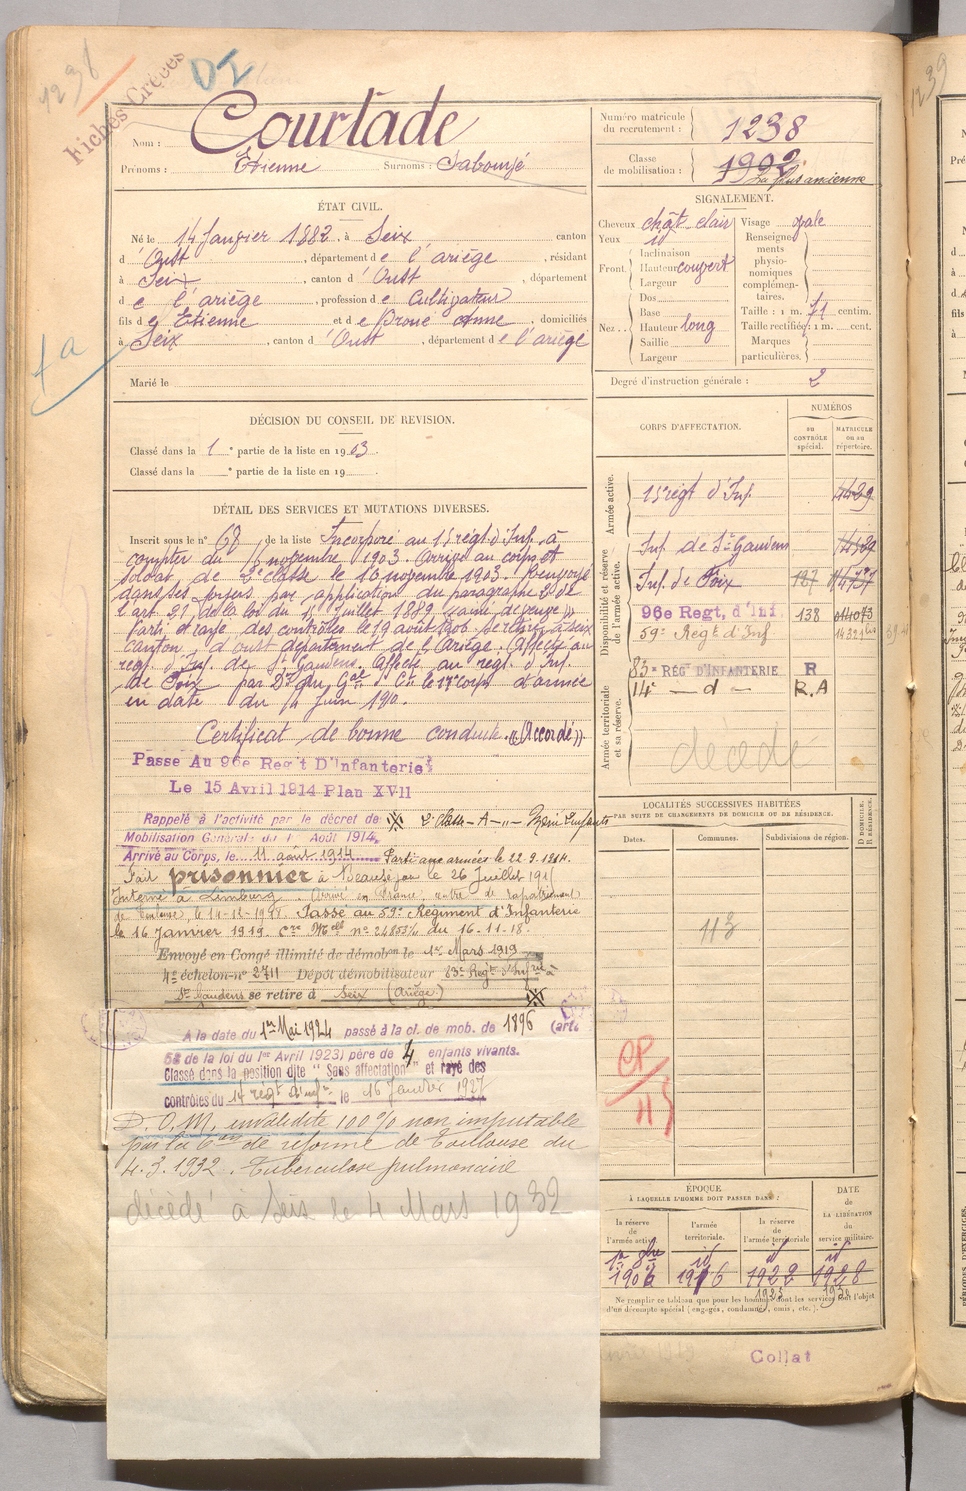 1238
Fiches Créées
DI
Nom : Courtade
Prénoms : Étienne Surnoms : Sabouyé
Numéro matricule du recrutement : 1238
Classe de mobilisation : 1902
La plus ancienne
ÉTAT CIVIL.
Né le 14 Janvier 1882, à Seix canton
d'Oust, département de l'ariège, résidant
à Seix, canton d'Oust, département
de l'ariège, profession de Cultivateur
fils de Etienne et de Anne, domiciliés
à Seix, canton d'Oust, département de l'ariège
Marié le
SIGNALEMENT.
Cheveux chât. clair
Yeux id
Front. Inclinaison
Hauteur couvert
Largeur
Nez. Dos
Base
Hauteur long
Saillie
Largeur
Visage ovale
Renseignements physionomiques complémentaires.
Taille : 1 m. 71 centim.
Taille rectifiée : 1 m. cent.
Marques particulières.
Degré d'instruction générale : 2
DÉCISION DU CONSEIL DE REVISION.
Classé dans la 1e partie de la liste en 1903.
Classé dans la e partie de la liste en 19
DÉTAIL DES SERVICES ET MUTATIONS DIVERSES.
Inscrit sous le n° 68 de la liste Incorporé au 15 régt d'Inf. à
compter du 16 novembre 1903. Arrivé au corps et
soldat de 2e classe le 16 novembre 1903. Renvoyé
dans ses foyers par application du paragraphe 2 de
l'art. 21 de la loi du 15 Juillet 1889
Parti et rayé des contrôles le 19 août 1906. Se retire à Seix
Canton d'Oust département de l'Ariège. Affecté au
régt. d'Inf. de St Gaudens. Affecté au régt. d'Inf.
de Foix par Don du Gal Ct le 17e corps d'armée
en date du 14 Juin 190
Certificat de bonne conduite «Accordé»
Passe Au 96e Regt D'Infanterie
Le 15 Avril 1914 Plan XVII
Rappelé à l'activité par le décret de
Mobilisation Générale du 1er Août 1914.
Arrivé au Corps, le 11 août 1914 Parti aux armées le 22.9.1914.
Fait prisonnier à Beauséjour le 26 Juillet 191
Interné à Limburg. Arrivé en France, centre de rapatriement
de Toulouse, le 14-12-1918. Passé au 59e Régiment d'Infanterie
le 16 Janvier 1919. cre Melle n° 24853 du 16.11.18.
Envoyé en Congé illimité de démobon le 1er Mars 1919
4e échelon n° 2711 Dépôt démobilisateur 83e Regt d'Infrie à
St Gaudens se retire à Seix (Ariège)
A la date du 1er Mai 1924 passé à la cl. de mob. de 1896 (art.
58 de la loi du 1er Avril 1923) père de 4 enfants vivants.
Classé dans la position dite "Sans affectation" et rayé des
contrôles du 14 régt d'infie le 16 Janvier 1927
D. O. M. invalidité 100 % non imputable
par la Con de réforme de Toulouse du
4.3.1932. Tuberculose pulmonaire
décédé à Seix le 4 Mars 1932
CORPS D'AFFECTATION.
NUMÉROS
au contrôle spécial.
MATRICULE ou au répertoire.
Armée active.
15 régt d'Inf. 4429
Disponibilité et réserve de l'armée active.
Inf. de St Gaudens
Inf. de Foix 127
96e Regt, d'Inf. 138 011073
59e Régt d'Inf
Armée territoriale et sa réserve.
83e RÉGt D'INFANTERIE R
14e — d — R.A
décédé
LOCALITÉS SUCCESSIVES HABITÉES
PAR SUITE DE CHANGEMENTS DE DOMICILE OU DE RÉSIDENCE.
Dates. Communes. Subdivisions de région.
D DOMICILE. R RÉSIDENCE.
113
CP/113
ÉPOQUE
À LAQUELLE L'HOMME DOIT PASSER DANS :
la réserve de l'armée active
l'armée territoriale.
la réserve de l'armée territoriale
DATE de LA LIBÉRATION du service militaire.
1er 8bre id id id
1906 1916 1922 1928
1923
Ne remplir ce tableau que pour les hommes dont les services font l'objet
d'un décompte spécial (engagés, condamnés, omis, etc.).
Collat
1239